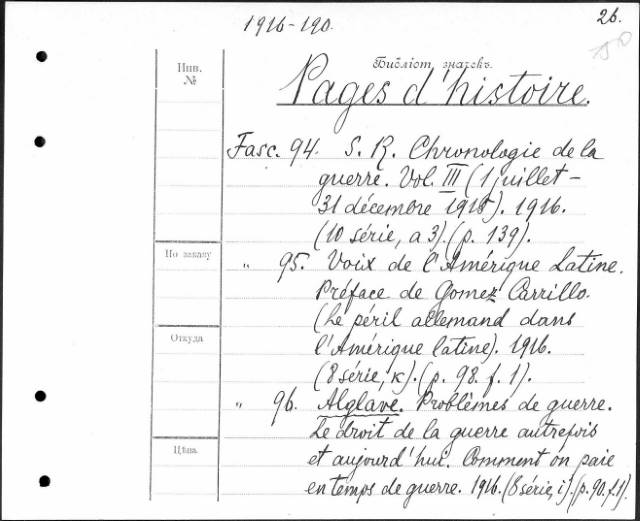 1916-190.
26.
Библіот. значекъ.
Инв.
№
Pages d'histoire.
Fasc. 94. S. R. Chronologie de la
guerre. Vol. III (1 juillet –
31 décembre 1915). 1916.
(10 série, a 3). (p. 139).
По заказу
" 95. Voix de l'Amérique Latine.
Préface de Gomez Carrillo.
(Le péril allemand dans
Откуда
l'Amérique latine). 1916.
(8 série, k). (p. 98. f. 1).
" 96. Alglave. Problèmes de guerre.
Le droit de la guerre autrefois
Цѣна.
et aujourd'hui. Comment on paie
en temps de guerre. 1916. (8 série, i). (p. 90. f. 1).